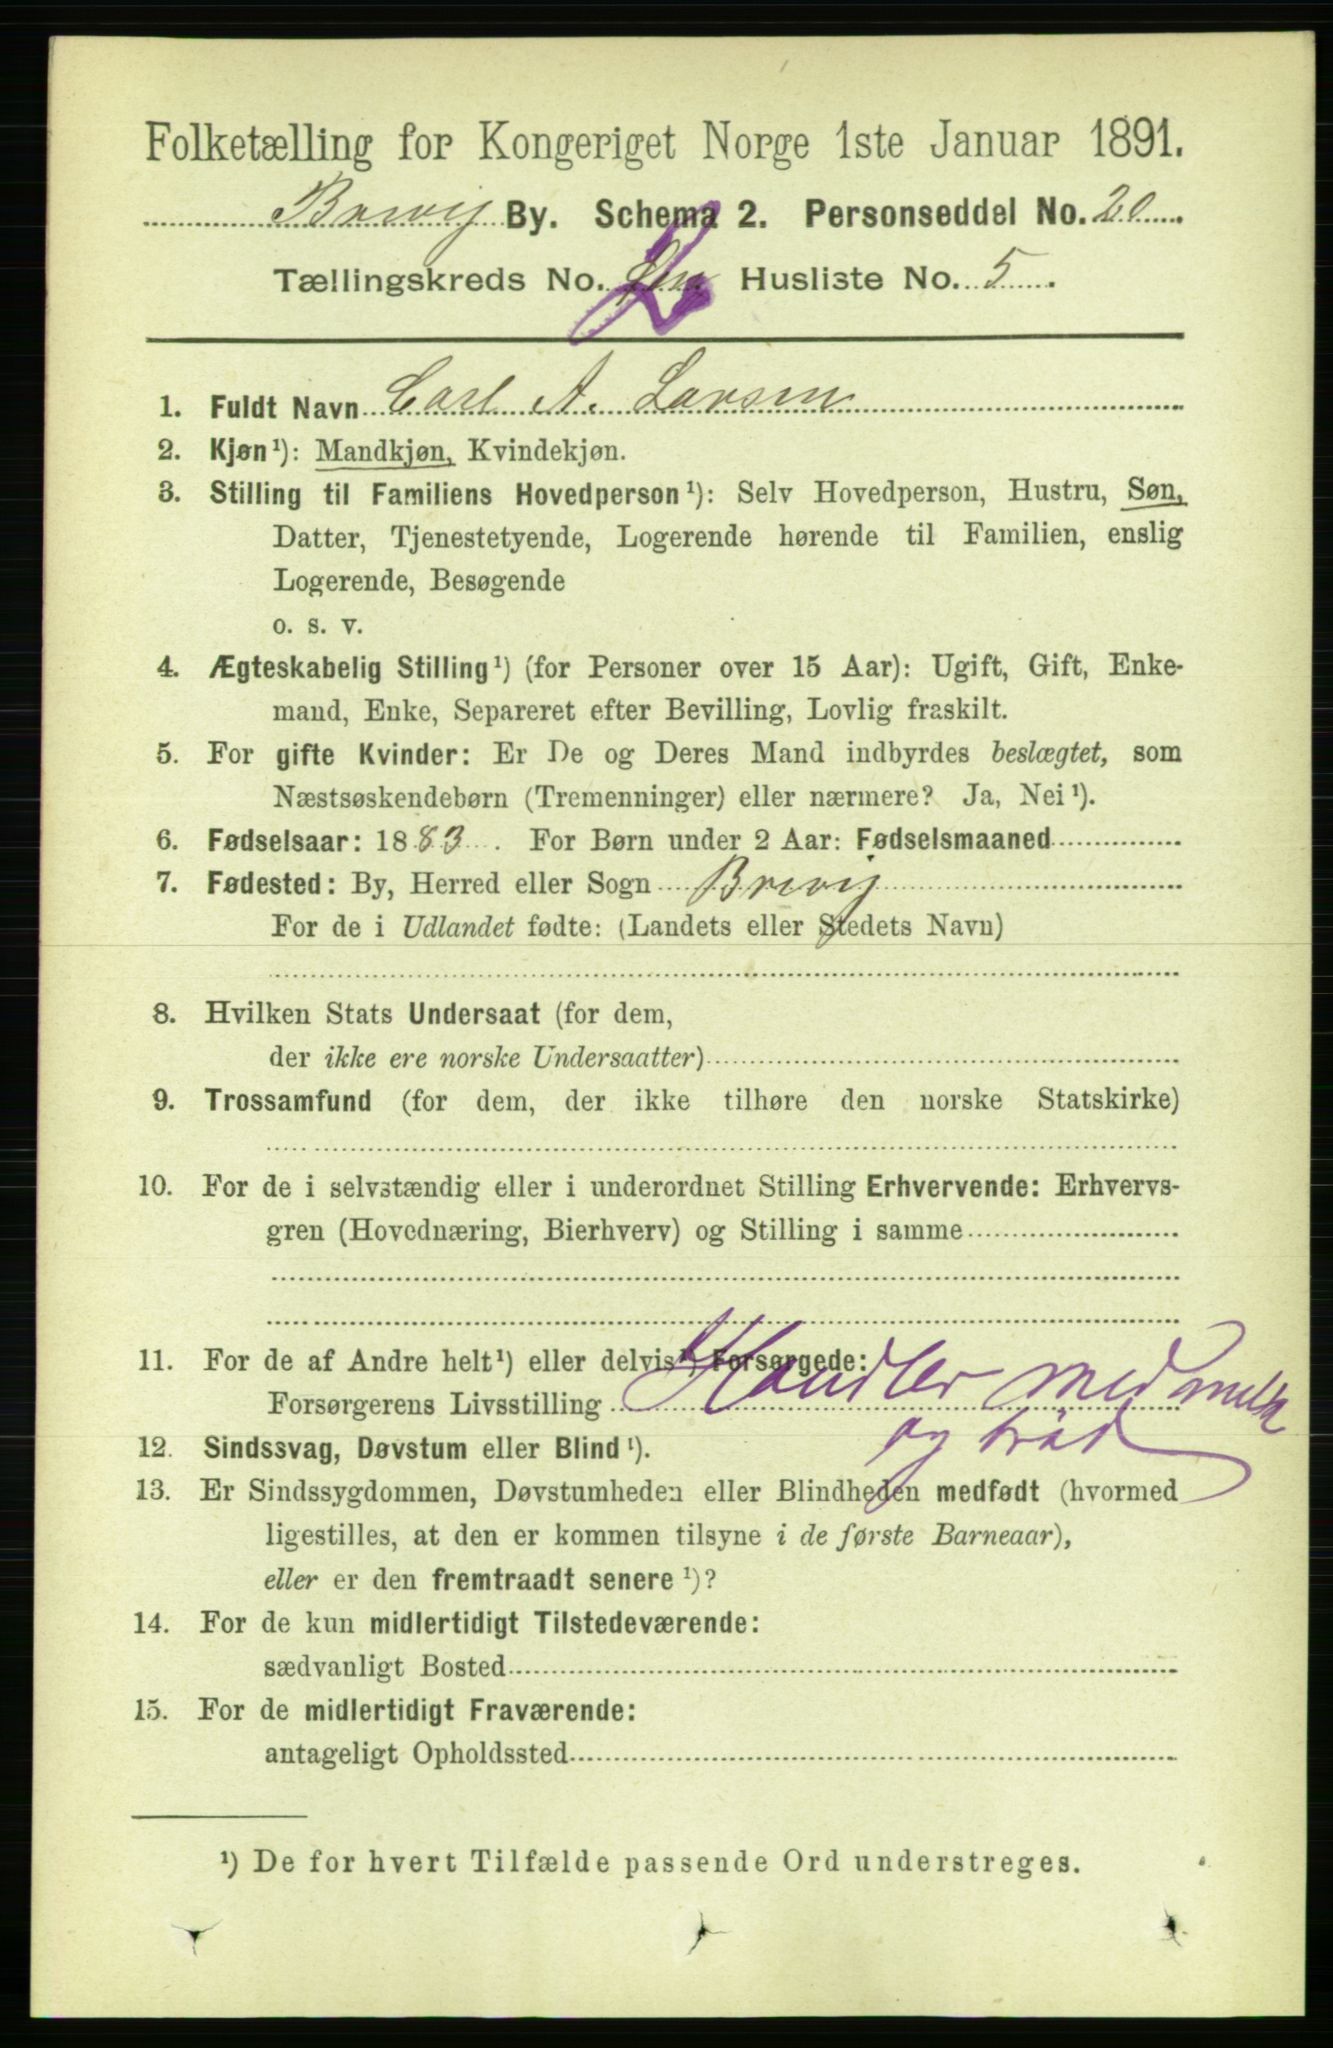 Folketælling for Kongeriget Norge 1ste Januar 1891.
Brevig By. Schema 2. Personseddel No. 20.
Tællingskreds No. 2 Husliste No. 5.
1. Fuldt Navn Carl A. Larsen
2. Kjøn¹): Mandkjøn, Kvindekjøn.
3. Stilling til Familiens Hovedperson¹): Selv Hovedperson, Hustru, Søn,
Datter, Tjenestetyende, Logerende hørende til Familien, enslig
Logerende, Besøgende
o. s. v.
4. Ægteskabelig Stilling¹) (for Personer over 15 Aar): Ugift, Gift, Enke-
mand, Enke, Separeret efter Bevilling, Lovlig fraskilt.
5. For gifte Kvinder: Er De og Deres Mand indbyrdes beslægtet, som
Næstsøskendebørn (Tremenninger) eller nærmere? Ja, Nei¹).
6. Fødselsaar: 1883. For Børn under 2 Aar: Fødselsmaaned
7. Fødested: By, Herred eller Sogn Brevig
For de i Udlandet fødte: (Landets eller Stedets Navn)
8. Hvilken Stats Undersaat (for dem,
der ikke ere norske Undersaatter)
9. Trossamfund (for dem, der ikke tilhøre den norske Statskirke)
10. For de i selvstændig eller i underordnet Stilling Erhvervende: Erhvervs-
gren (Hovednæring, Bierhverv) og Stilling i samme
11. For de af Andre helt¹) eller delvis¹) Forsørgede:
Forsørgerens Livsstilling Handler med melk
og bröd
12. Sindssvag, Døvstum eller Blind¹).
13. Er Sindssygdommen, Døvstumheden eller Blindheden medfødt (hvormed
ligestilles, at den er kommen tilsyne i de første Barneaar),
eller er den fremtraadt senere¹)?
14. For de kun midlertidigt Tilstedeværende:
sædvanligt Bosted
15. For de midlertidigt Fraværende:
antageligt Opholdssted
¹) De for hvert Tilfælde passende Ord understreges.